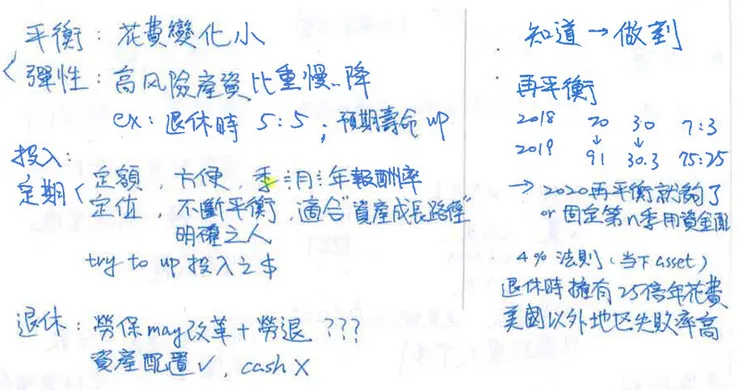 平衡：花費變化小
彈性：高风險產資比重慢慢降
ex：退休時 5：5；預期壽命 up
投入：
定期 定額，方便，季≒月≒年報酬率
定位，不斷平衡，適合"資產成長路徑"
明確之人
try to up 投入之$
退休：勞保 may 改革＋勞退 ???
資產配置✓，cash X
知道→做到
再平衡
2018 70 30 7:3
2019 91 30.3 75:25
→ 2020再平衡就夠了
or 固定第n季用資金
4% 法則（當下 asset）
退休時擁有25倍年花費
美國以外地区失敗率高